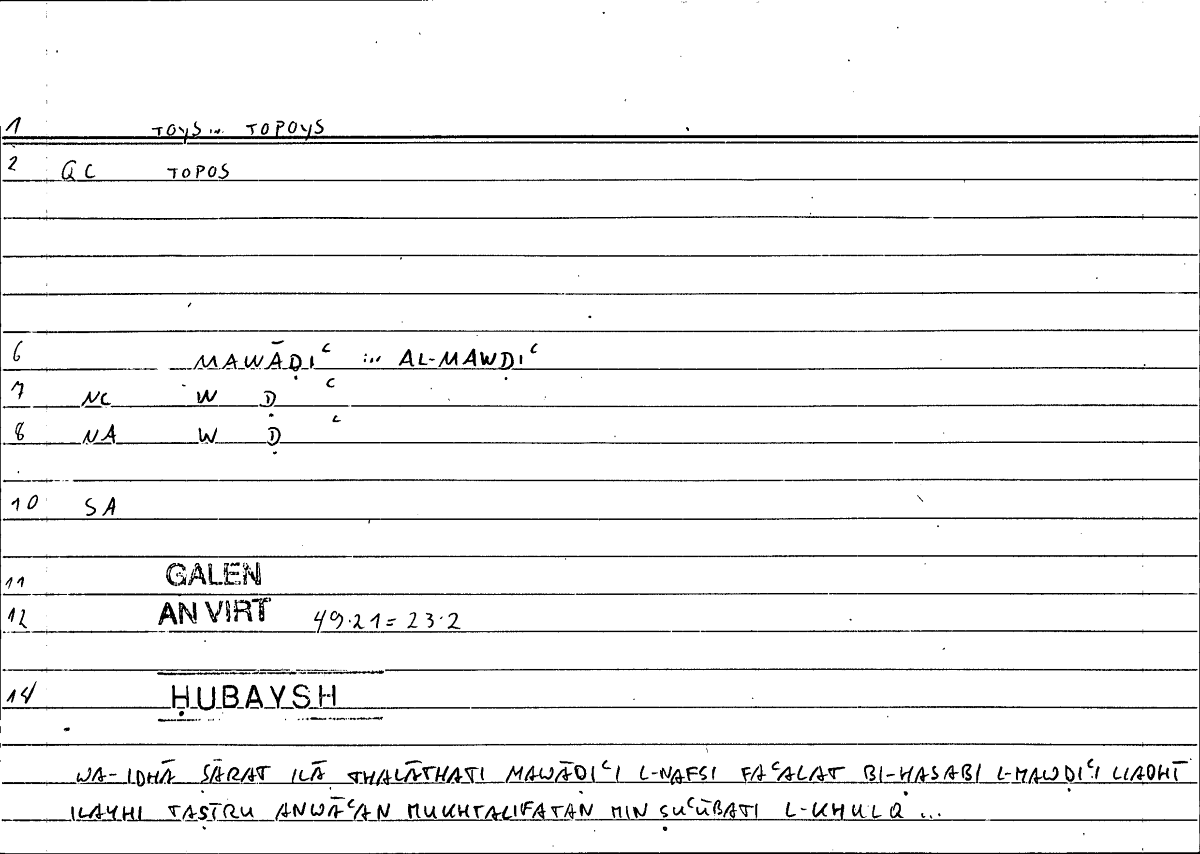 1 TOYS ... TOPOYS
2 QC TOPOS
6 MAWĀḌIᶜ ... AL-MAWḌIᶜ
7 NC W Ḍ ᶜ
8 NA W Ḍ ᶜ
10 SA
11 GALEN
12 AN VIRT 49.21 = 23.2
14 ḤUBAYSH
WA-IDHĀ ṢĀRAT ILĀ THALĀTHATI MAWĀḌIᶜI L-NAFSI FAᶜALAT BI-ḤASABI L-MAWḌIᶜI LLADHĪ
ILAYHI TAṢĪRU ANWĀᶜAN MUKHTALIFATAN MIN ṢUᶜŪBATI L-KHULQ ...